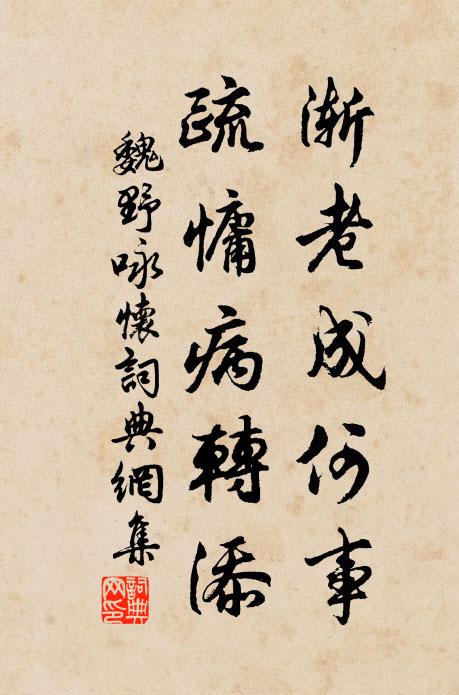 漸老成何事
疏慵病轉添
魏野咏懷詞典網集
詞典網印